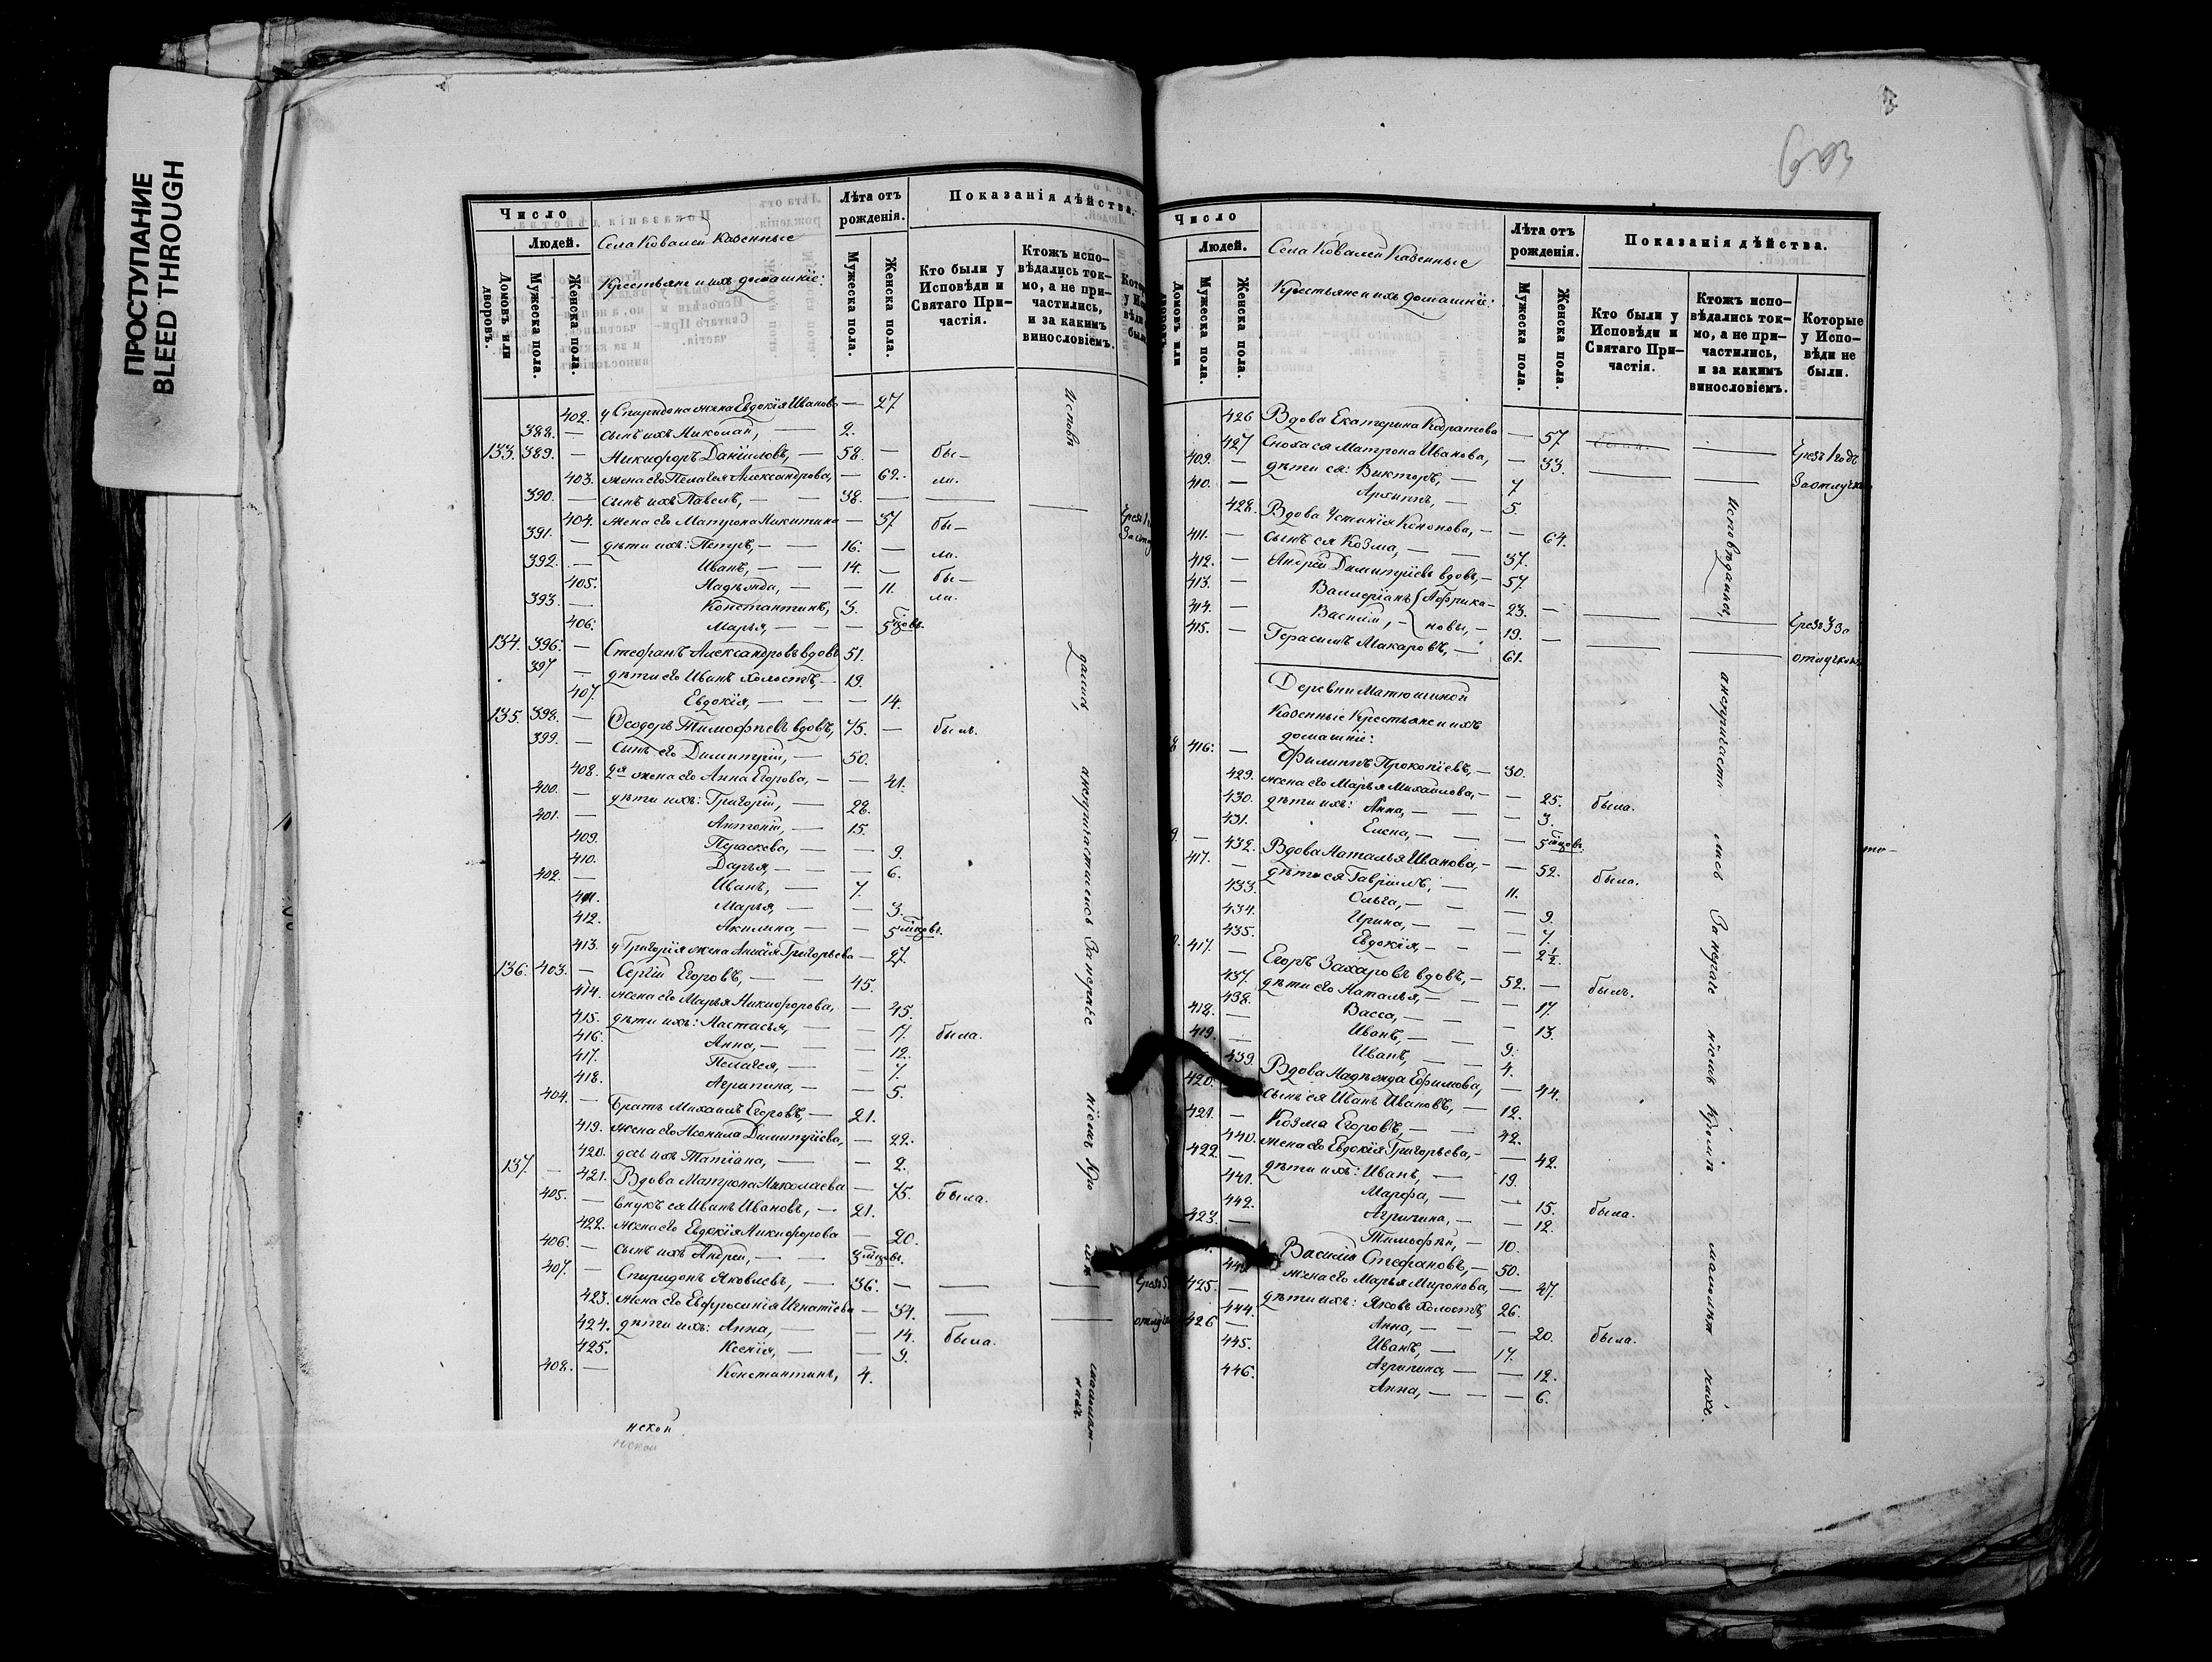 ПРОСТУПАНИЕ
BLEED THROUGH
Число
Людей.
Домовъ или дворовъ.
Мужеска пола.
Женска пола.
Села Ковалей Казенные
Крестьяне и ихъ домашніе:
Лѣта отъ рожденія.
Мужеска пола.
Женска пола.
Показанія дѣйства.
Кто были у Исповѣди и Святаго Причастія.
Ктожъ исповѣдались токмо, а не причастились, и за какимъ винословіемъ.
402. у Спиридона жена Евдокія Иванов — 27.
388. — сынъ ихъ Николай, — 2.
133. 389. — Никифоръ Даніиловъ, — 58. — бы—
403. жена его Пелагея Александрова, — 62. ли.
390. — сынъ ихъ Павелъ, — 38. —
404. жена его Матрона Никитина — 37. бы—
391. — дѣти ихъ: Петръ, — 16. — ли.
392. — Иванъ, — 14. — бы—
405. Надѣжда, — — 11. ли.
393. — Константинъ, 3.
406. Марья, — — 5 мцовъ.
134. 396. — Стефанъ Александровъ вдовъ 51.
397 — дѣти его Иванъ холостъ, — 19.
407. Евдокія, — — 14.
135. 398. — Ѳеодоръ Тимофѣевъ вдовъ, 75. — былъ.
399. — Сынъ его Димитрій, — 50.
408. 2я жена его Анна Егорова, — — 41.
400. — дѣти ихъ: Григорій, — 28.
401. — Антоній, — 15.
409. Параскева, — — 9.
410. Дарья, — — 6.
402. — Иванъ, — 7.
411. Марья, — — 3.
412. Акилина, — — 5 мцовъ.
413. у Григорія жена Анисія Григорьева — 27.
136. 403. — Сергій Егоровъ, — 45.
414. жена его Марья Никифорова, — 45.
415. дѣти ихъ: Настасья, — — 17. была.
416. Анна, — — 12.
417. Пелагея, — — 7.
418. Агрипина, — — 5.
404. — братъ Михаилъ Егоровъ, — 21.
419. жена его Неонила Димитріева, — 22.
420. дочь ихъ Татіана, — — 2.
137. — 421. Вдова Матрона Николаева — 75. была.
405. — внукъ ея Иванъ Ивановъ, — 21.
422. жена его Евдокія Никифорова — 20.
406. — сынъ ихъ Андрей, — 3 мцовъ.
407. — Спиридонъ Яковлевъ, — 36. —
423. жена его Евфросинія Игнатіева — 34. —
424. дѣти ихъ: Анна, — — 14. была.
425. Ксенія, — — 9.
408. — Константинъ, 4.
нской
нской
Число
Людей.
Домовъ или
Мужеска пола.
Женска пола.
Села Ковалей Казенные
Крестьяне и ихъ домашніе:
Лѣта отъ рожденія.
Мужеска пола.
Женска пола.
Показанія дѣйства.
Кто были у Исповѣди и Святаго Причастія.
Ктожъ исповѣдались токмо, а не причастились, и за какимъ винословіемъ.
Которые у Исповѣди не были.
426 Вдова Екатерина — 57. Чрезъ 1 годъ
427 Сноха ея Матрона Иванова, — 33. За отлучкою
409. — дѣти ея: Викторъ, — 7
410. — Архиппъ, — 5.
428. Вдова Устинія Кононова, — — 64.
411. — Сынъ ея Козма, — 37.
412. — Андрей Димитріевъ вдовъ, — 57.
413. — Валиріанъ Африка— 23. —
414. — Василій, — новы, — 19. —
415. — Герасимъ Макаровъ, — 61.
Деревни Матюшиной
Казенніе Крестьяне и ихъ
домашніе:
416. — Филиппъ Прокопіевъ, — 30.
429. жена его Марья Михаилова, — — 25. была.
430. дѣти ихъ: Анна, — — 3.
431. Елена, — — 5 мцовъ.
— 432. Вдова Наталья Иванова, — — 52. была.
417. — дѣти ея Гавріилъ, — 11.
433. Ольга, — — 9.
434. Ирина, — — 7.
435. Евдокія, — — 2½.
417. — Егоръ Захаровъ вдовъ, — 52. — былъ.
437. дѣти его Наталья, — — 17.
438. Васса, — — 13.
418. — Иванъ, — 9.
419. — Иванъ, — 4.
439. Вдова Надѣжда Ефимова, — 44.
420. сынъ ея Иванъ Ивановъ, — 12.
421. — Козма Егоровъ, — 42.
440. жена его Евдокія Григорьева, — — 42.
422. — дѣти ихъ: Иванъ, — 19.
441. Марфа, — — 15. была.
442. Агрипина, — — 12.
423. — Тимофѣй, — 10.
Василій Стефановъ, — 50.
жена его Марья Миронова, — 47.
425. — дѣти ихъ: Яковъ холостъ, 26.
444. Анна, — — 20. была.
426 — Иванъ, — 17.
445. Агрипина, — — 12.
446. Анна, — — 6.